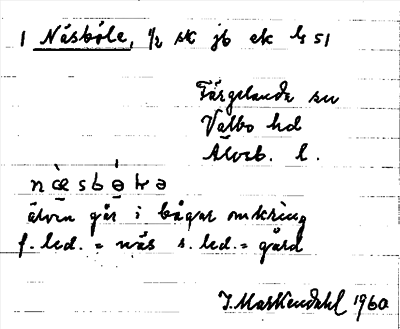 1 Näsböle, 1/2 sk jb ek ls 51
Färgelanda sn
Valbo hd
Älvsb. l.
n æ̀ s b ə̍ ɽ ə
älven går i bågar omkring
f. led. = näs s. led. = gård
J. Markendahl 1960